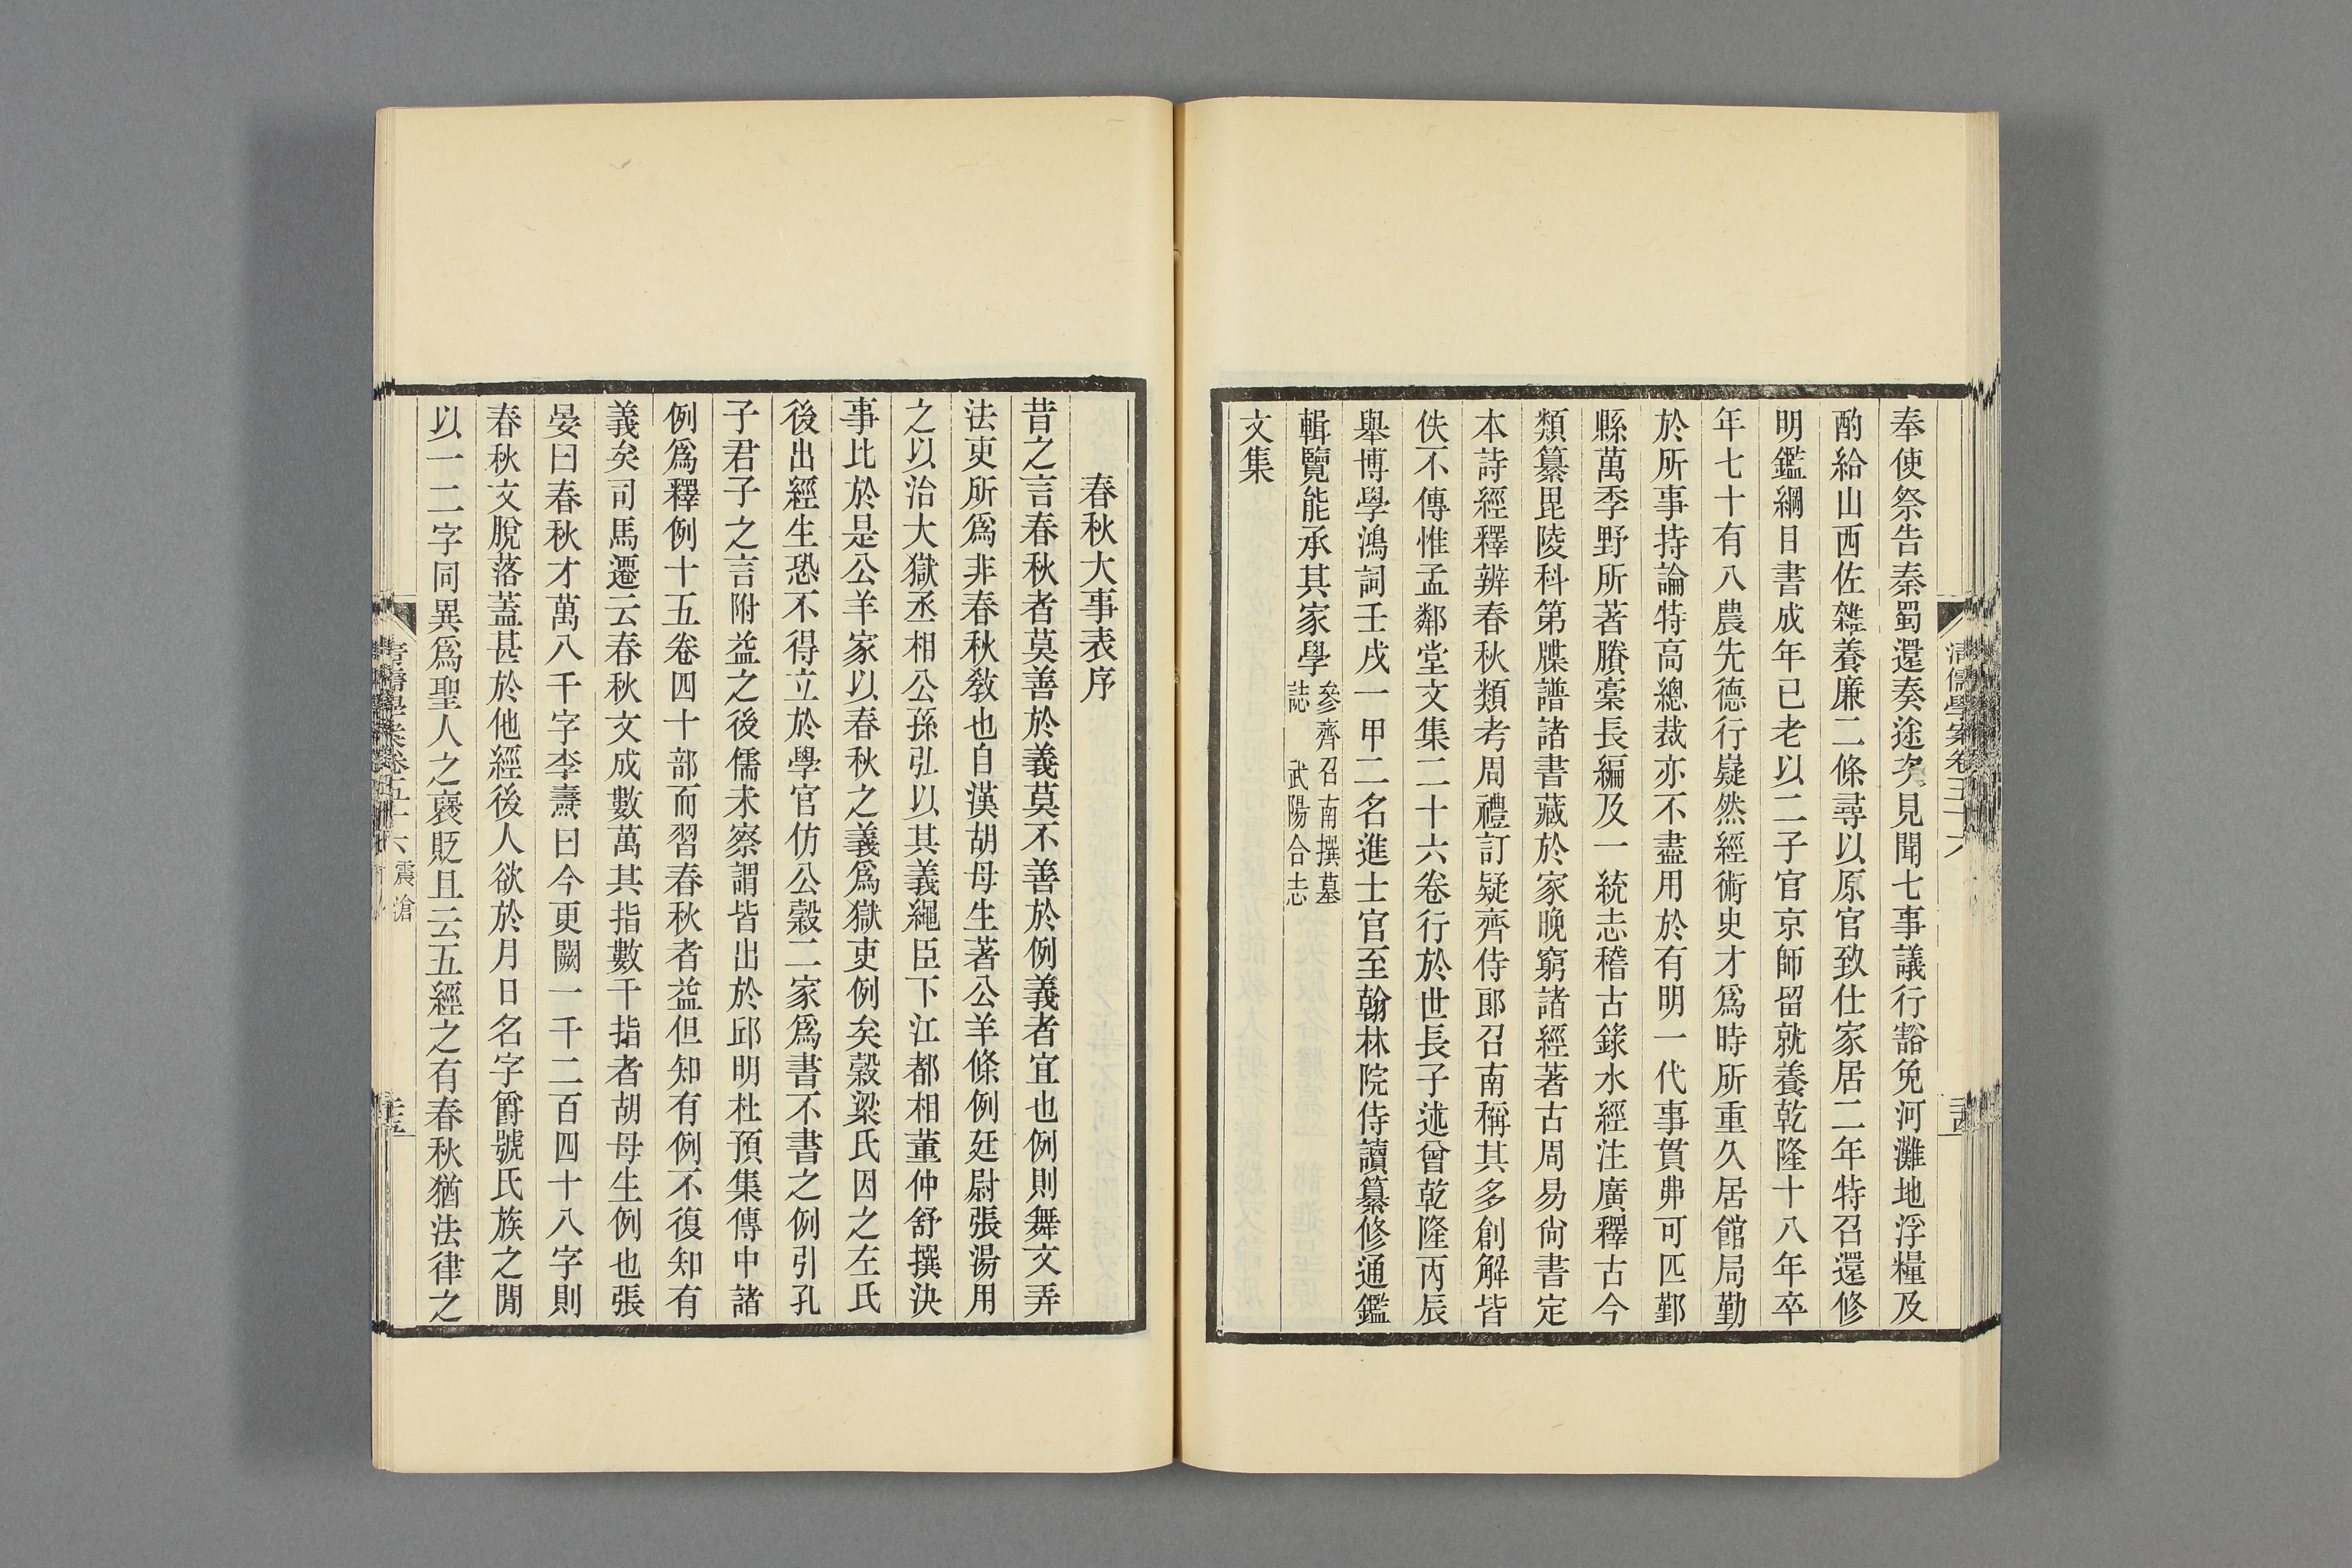 奉使祭告秦蜀還奏途次見聞七事議行豁免河灘地浮糧及
酌給山西佐雜養廉二條尋以原官致仕家居二年特召還修
明鑑綱目書成年已老以二子官京師留就養乾隆十八年卒
年七十有八農先德行嶷然經術史才爲時所重久居館局勤
於所事持論特高總裁亦不盡用於有明一代事貫弗可匹鄞
縣萬季野所著賸稾長編及一統志稽古錄水經注廣釋古今
類纂毘陵科第牒譜諸書藏於家晚窮諸經著古周易尙書定
本詩經釋辨春秋類考周禮訂疑齊侍郎召南稱其多創解皆
佚不傳惟孟鄰堂文集二十六卷行於世長子述曾乾隆丙辰
舉博學鴻詞壬戌一甲二名進士官至翰林院侍讀纂修通鑑
輯覽能承其家學參齊召南撰墓
誌 武陽合志
文集
清儒學案卷五十六
春秋大事表序
昔之言春秋者莫善於義莫不善於例義者宜也例則舞文弄
法吏所爲非春秋敎也自漢胡母生著公羊條例廷尉張湯用
之以治大獄丞相公孫弘以其義繩臣下江都相董仲舒撰決
事比於是公羊家以春秋之義爲獄吏例矣穀梁氏因之左氏
後出經生恐不得立於學官仿公穀二家爲書不書之例引孔
子君子之言附益之後儒未察謂皆出於邱明杜預集傳中諸
例爲釋例十五卷四十部而習春秋者益但知有例不復知有
義矣司馬遷云春秋文成數萬其指數千指者胡母生例也張
晏曰春秋才萬八千字李燾曰今更闕一千二百四十八字則
春秋文脫落蓋甚於他經後人欲於月日名字爵號氏族之閒
以一二字同異爲聖人之襃貶且云五經之有春秋猶法律之
清儒學案卷五十六 震滄